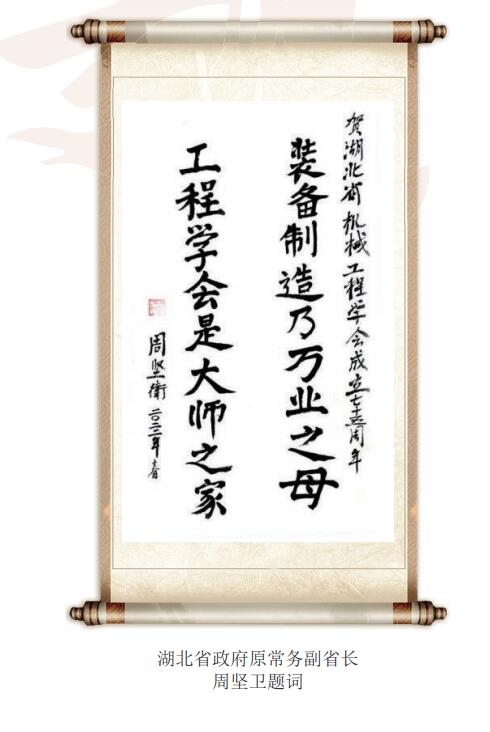 贺湖北省机械工程学会成立七十五周年
装备制造乃万业之母
工程学会是大师之家
周坚卫二〇二二年春
湖北省政府原常务副省长
周坚卫题词